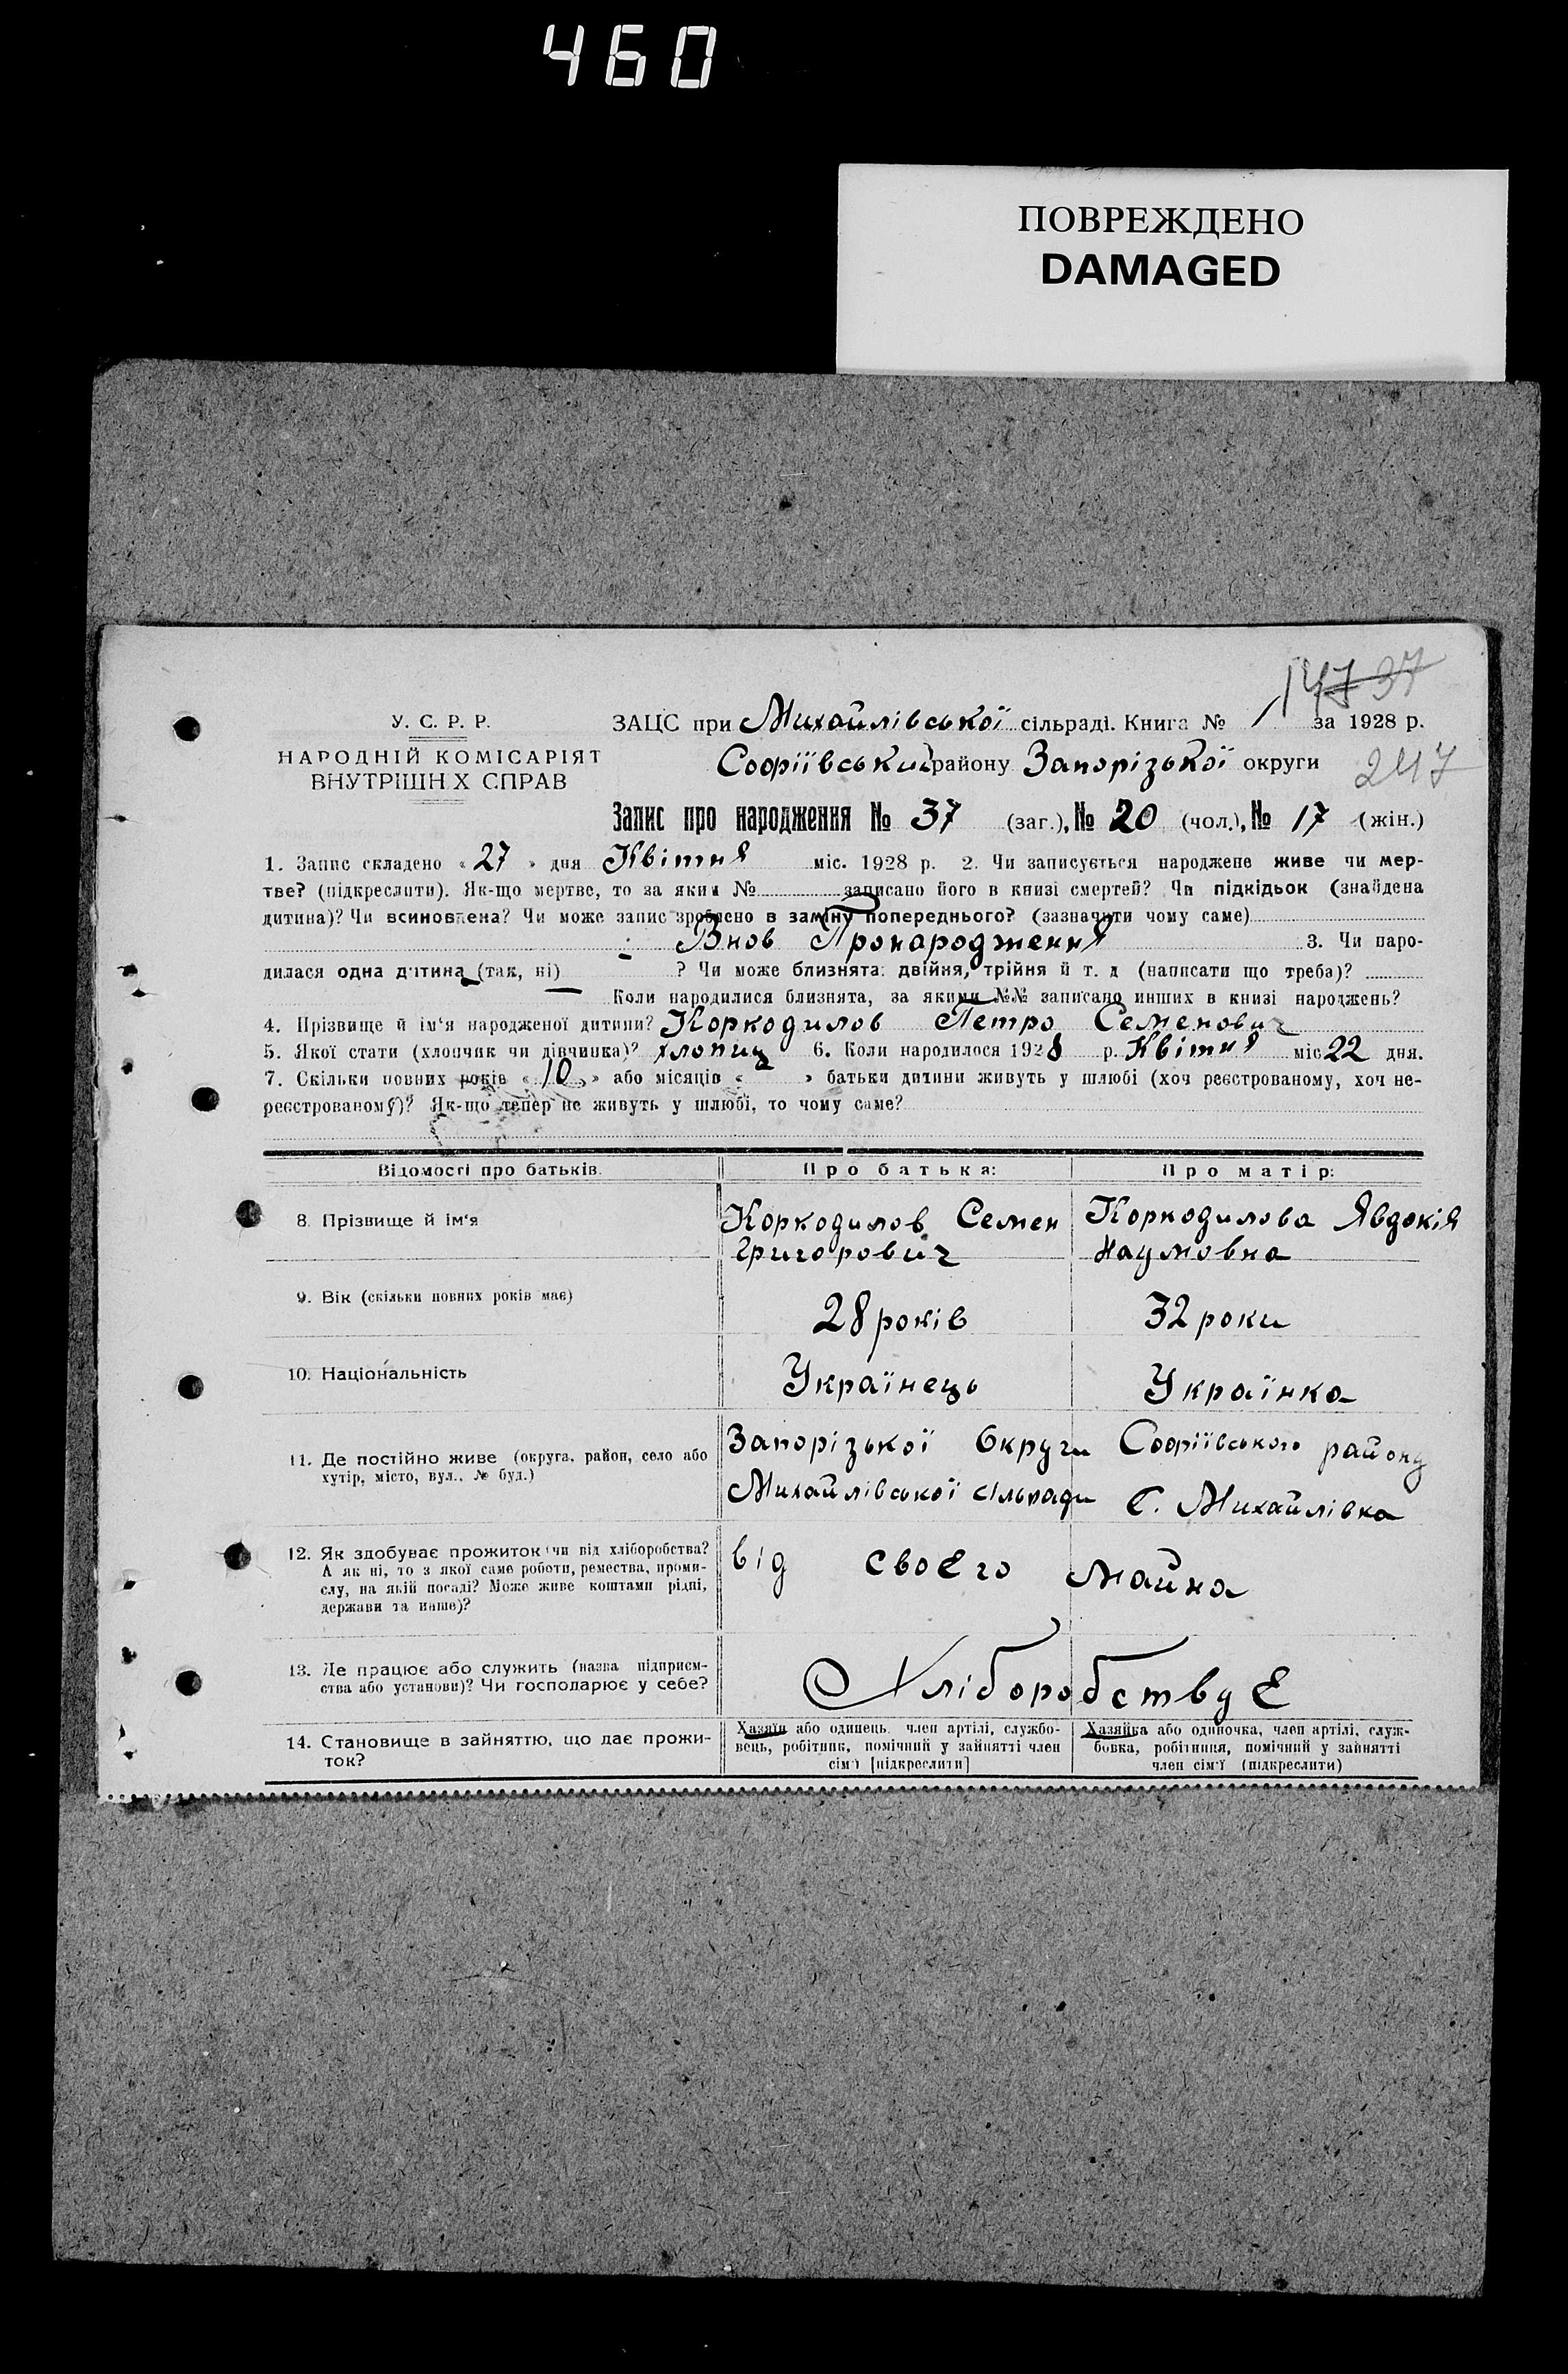 460
ПОВРЕЖДЕНО
DAMAGED
37
У. С. Р. Р.
НАРОДНІЙ КОМІСАРІЯТ
ВНУТРІШН Х СПРАВ
ЗАЦС при Михайлівської сільраді. Книга № 1 за 1928 р.
Софіївський району Запорізької округи 247
Запис про народження № 37 (заг.), № 20 (чол.), № 17 (жін.)
1. Запис складено « 27 » дня Квітня міс. 1928 р. 2. Чи записується народжене живе чи мер-
тве? (підкреслити). Як-що мертве, то за яким № записано його в книзі смертей? Чи підкідьок (знайдена
дитина)? Чи всиновлена? Чи може запис зроблено в заміну попереднього? (зазначити чому саме)
Внов Пронародження 3. Чи наро-
дилася одна дитина (так, ні) ? Чи може близнята: двійня, трійня й т. д (написати що треба)?
Коли народилися близнята, за якими №№ записано инших в книзі народжень?
4. Прізвище й ім‘я народженої дитини? Коркодилов Петро Семенович
5. Якої стати (хлопчик чи дівчинка)? хлопиц 6. Коли народилося 1928 р. Квітня міс 22 дня.
7. Скільки повних років « 10 » або місяців « » батьки дитини живуть у шлюбі (хоч реєстрованому, хоч не-
реєстрованому)? Як-що тепер не живуть у шлюбі, то чому саме?
Відомості про батьків.
Про батька:
Про матір:
8. Прізвище й ім‘я
Коркодилов Семен
Григорович
Коркодилова Явдокія
Наумовна
9. Вік (скільки повних років має)
28 років
32 роки
10. Національність
Українець
Українка
11. Де постійно живе (округа, район, село або
хутір, місто, вул., № буд.)
Запорізької Округи Софіївського району
Михайлівської сільради С. Михайлівка
12. Як здобуває прожиток (чи від хліборобства?
А як ні, то з якої саме роботи, ремества, проми-
слу, на якій посаді? Може живе коштами рідні,
держави та инше)?
від своєго майна
13. Де працює або служить (назва підприєм-
ства або установи)? Чи господарює у себе?
Хліборобствує
14. Становище в зайняттю, що дає прожи-
ток?
Хазяїн або одинець, член артілі, службо-
вець, робітник, помічний у зайнятті член
сім‘ї [підкреслити]
Хазяйка або одиночка, член артілі, служ-
бовка, робітниця, помічний у зайнятті
член сім‘ї (підкреслити)